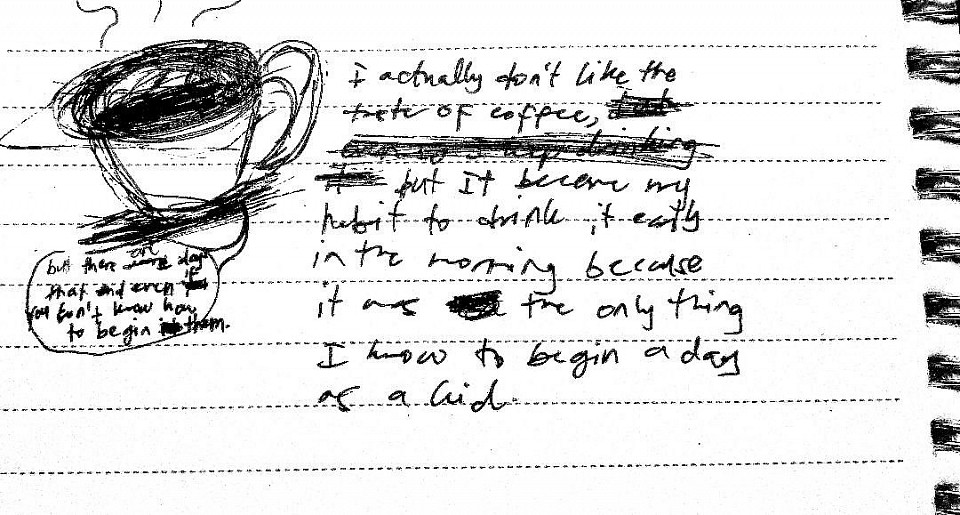 I actually don't like the
taste of coffee,
but it became my
habit to drink it early
in the morning because
it was the only thing
I know to begin a day
as a kid.
but there are days
that even if
you don't know how
to begin them.